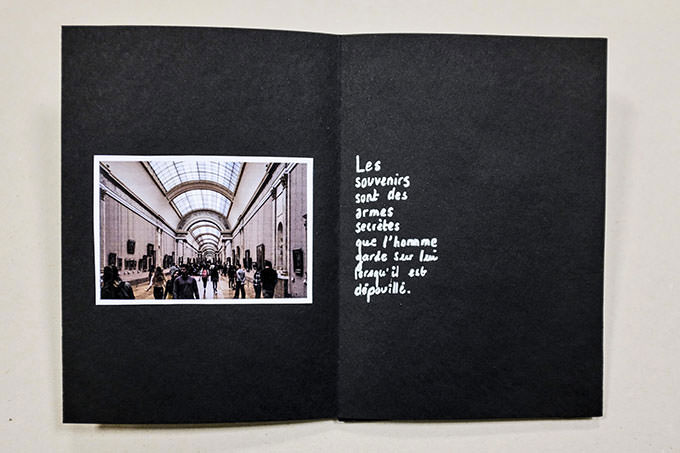 Les
souvenirs
sont des
armes
secrètes
que l'homme
garde sur lui
lorsqu'il est
dépouillé.